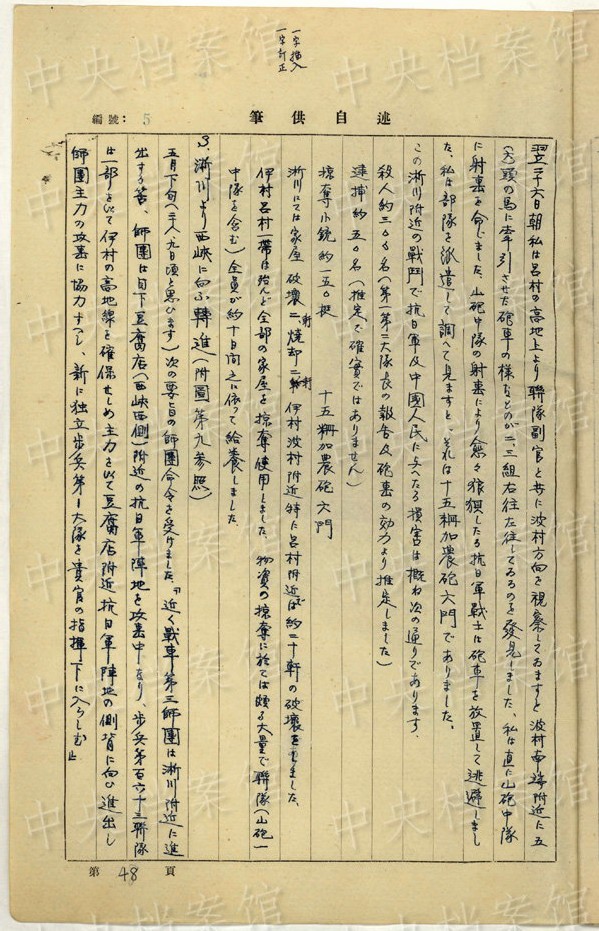 一字挿入
一字訂正
編號: 5
筆供自述
翌二十六日朝私は呂村の高地上より聯隊副官と共に波村方向を視察しておますと波村南端附近に五
(六)頭の馬に牽引させた砲車の様なものが二、三組右往左往しておるのを發見しました、私は直に山砲中隊
に射撃を命じました、山砲中隊の射撃により愈々狼狽したる抗日軍戰士は砲車を放置して逃避しまし
た、私は部隊を派遣して調べて見ますと、それは十五糎加農砲六門でありました。
この淅川附近の戰鬥で抗日軍及中國人民に与へたる損害は概ね次の通りであります。
殺人約三〇〇名(第一第二大隊長の報告及砲撃の効力より推定しました)
逮捕約五〇名(推定で確實ではありません)
掠奪小銃約一五〇挺 十五糎加農砲六門
淅川にては家屋破壞二軒、燒却二軒 伊村波村附近特に呂村附近で約二十軒の破壞をしました、
伊村呂村一帶は殆んど全部の家屋を掠奪使用しました、物資の掠奪に於ては頗る大量で聯隊(山砲一
中隊を含む)全員が約十日间之に依って給養しました
3、淅川より西峡に向ふ轉進(附圖第九参照)
五月下旬(二十八、九日頃と思ひます)次の要旨の師團命令を受けました、「近く戰車第三師團は淅川附近に進
出する筈、師團は目下豆腐店(西峡西側)附近の抗日軍陣地を攻撃中なり、步兵第百六十三聯隊
は一部を以て伊村の高地線を確保せしめ主力を以て豆腐店附近抗日軍陣地の側背に向ひ進出し
師團主力の攻撃に協力すべし、新に独立步兵第1大隊を貴官の指揮下に入らしむ」
第 48 頁
中央档案馆